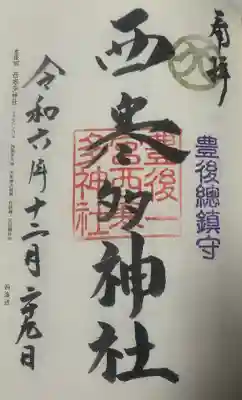 奉拝
豊後總鎮守
西寒多神社
豊後一
宮西寒
多神社
令和六年十二月二九日